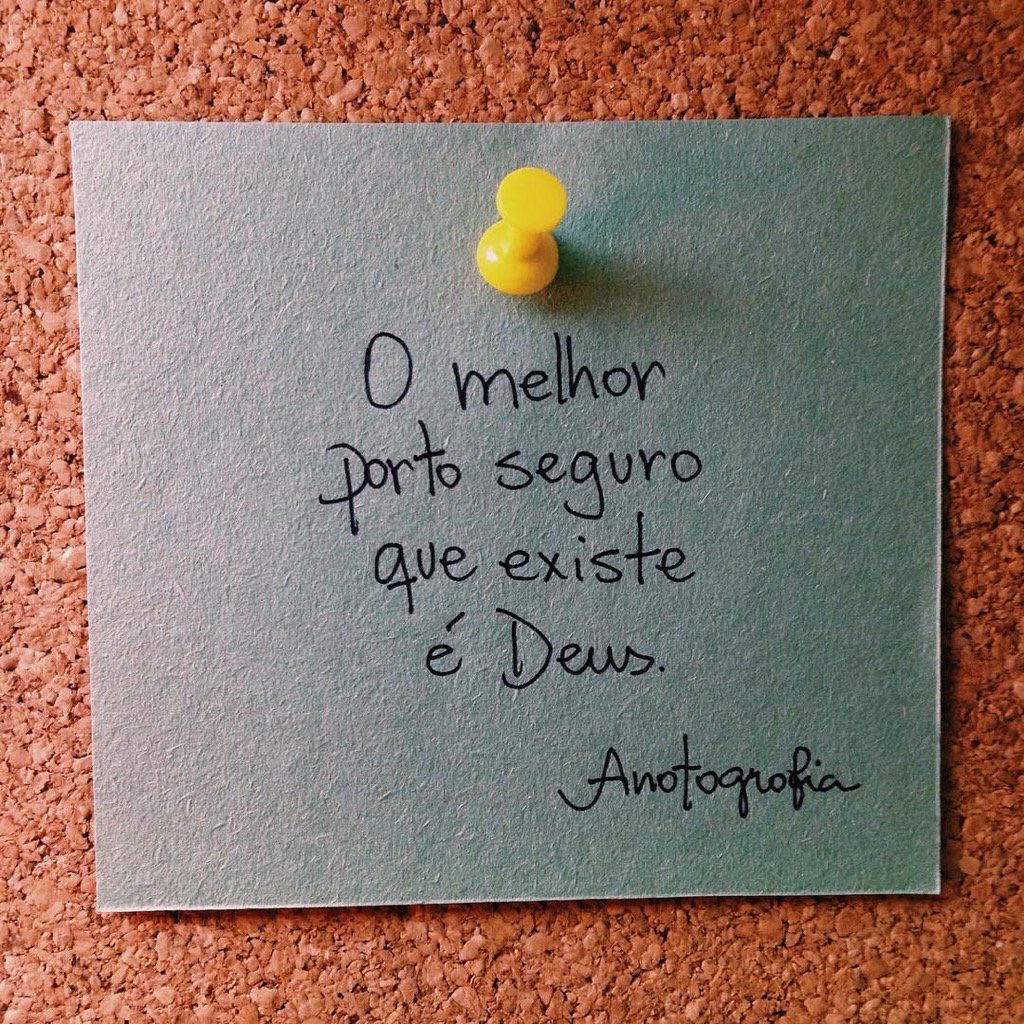 O melhor
porto seguro
que existe
é Deus.
Anotografia